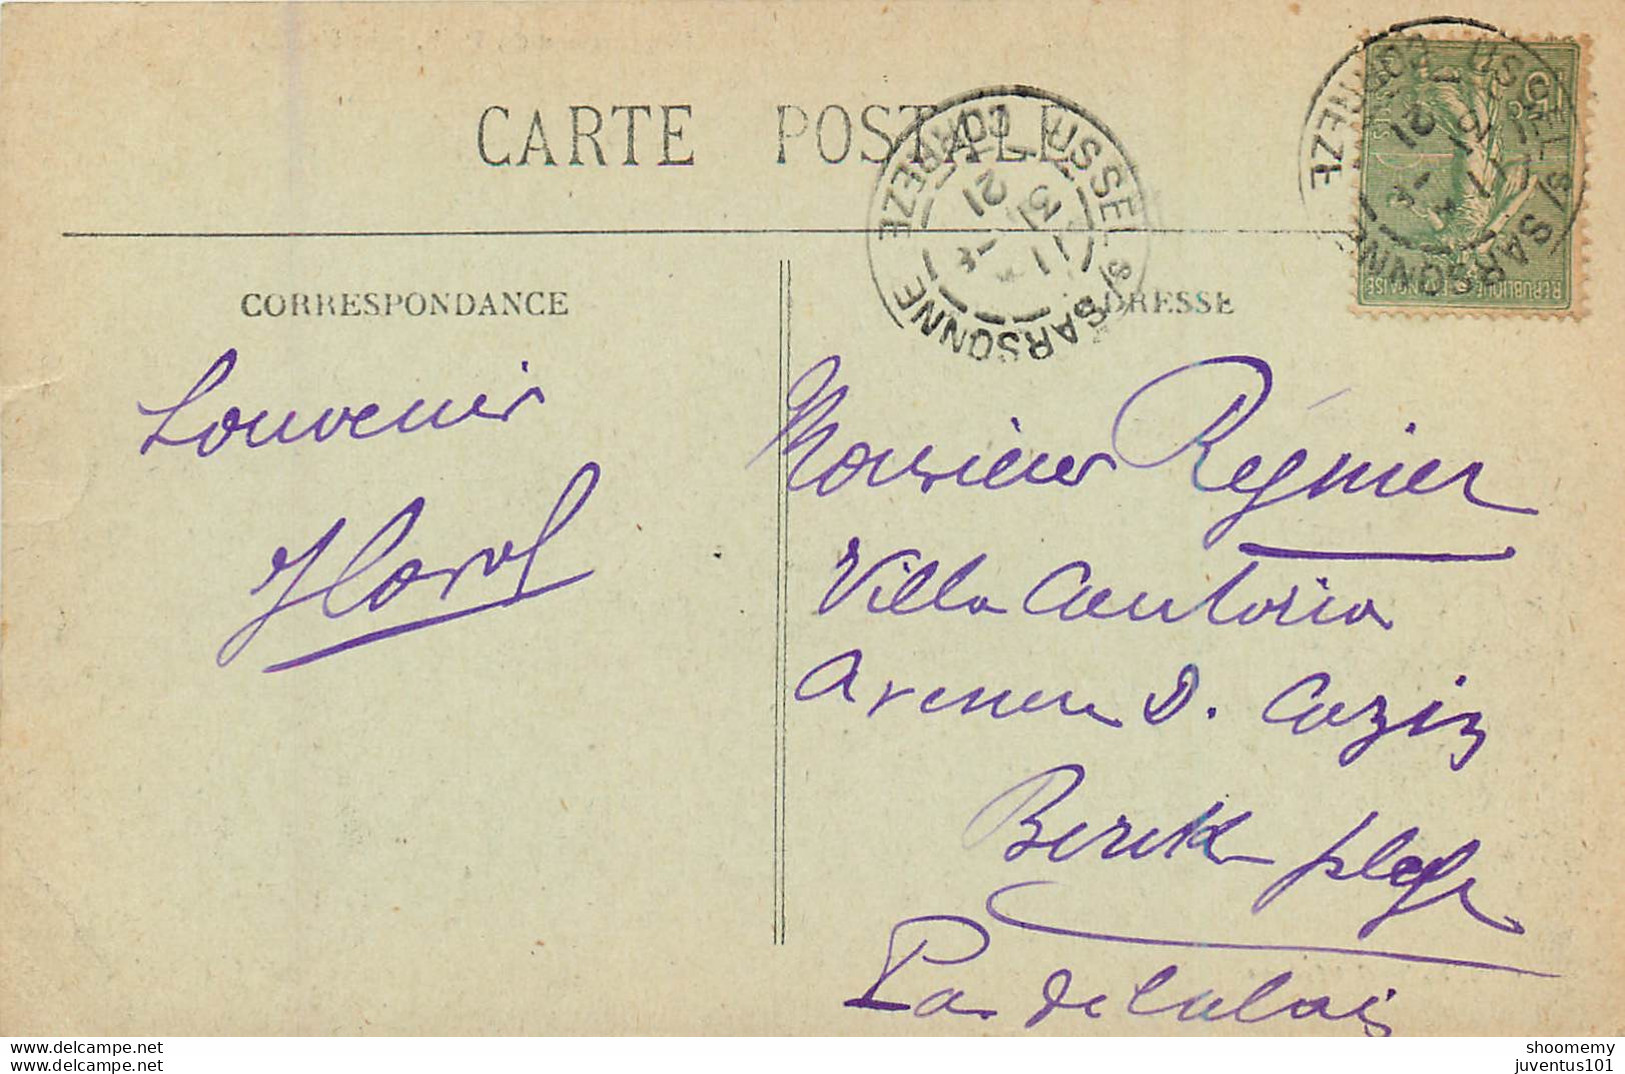 CARTE POSTALE
CORRESPONDANCE
ADRESSE
USSEL S/ SARSONNE
CORREZE
11
31
21
USSEL S/ SARSONNE
CORREZE
11
21
15c
REPUBLIQUE FRANÇAISE
Souvenir
Monsieur Régnier
Villa Cantoria
Avenue D. Cazin
Berck plage
Pas de Calais
www.delcampe.net
shoomemy
juventus101